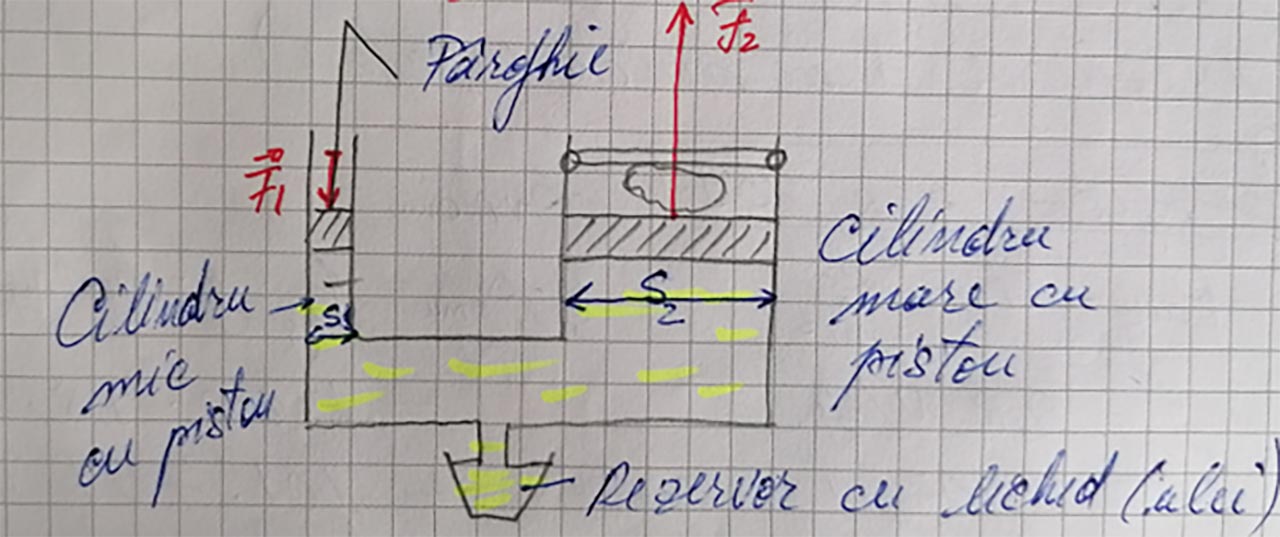 Pârghie
F₂
F₁
Cilindru
mic
cu piston
S₁
S₂
Cilindru
mare cu
piston
Rezervor cu lichid (ulei)